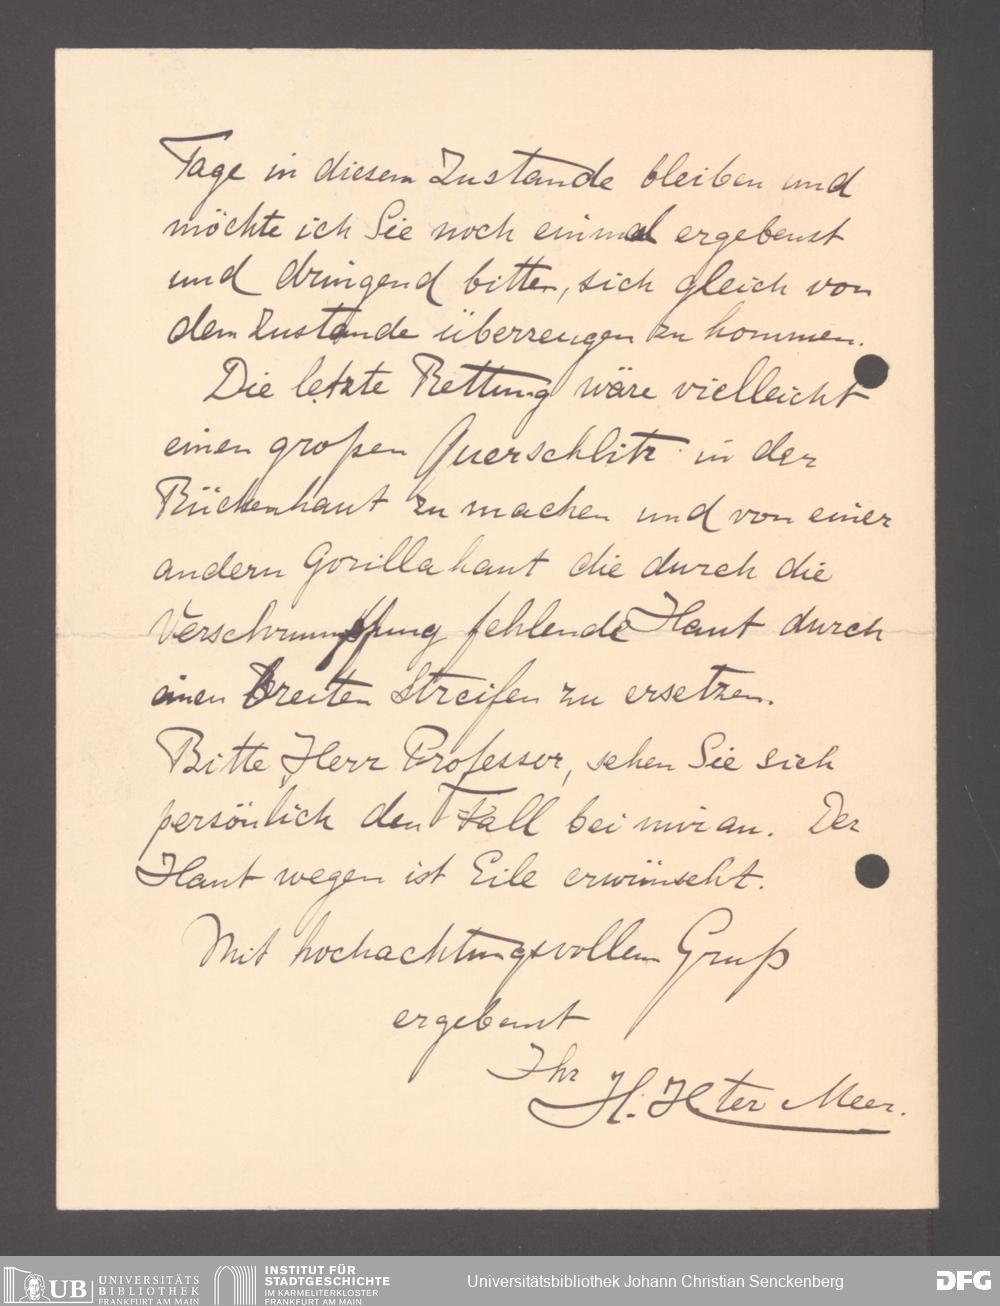 Tage in diesem Zustande bleiben und
möchte ich Sie noch einmal ergebenst
und dringend bitten, sich gleich von
dem Zustande überzeugen zu kommen.
Die letzte Rettung wäre vielleicht
einen großen Querschlitz in der
Rückenhaut zu machen und von einer
andern Gorillahaut die durch die
Verschrumpfung fehlende Haut durch
einen breiten Streifen zu ersetzen.
Bitte, Herr Professor, sehen Sie sich
persönlich den Fall bei mir an. Der
Haut wegen ist Eile erwünscht.
Mit hochachtungsvollem Gruß
ergebenst
Ihr
H. H. ter Meer.
UB UNIVERSITÄTS
BIBLIOTHEK
FRANKFURT AM MAIN
INSTITUT FÜR
STADTGESCHICHTE
IM KARMELITERKLOSTER
FRANKFURT AM MAIN
Universitätsbibliothek Johann Christian Senckenberg
DFG